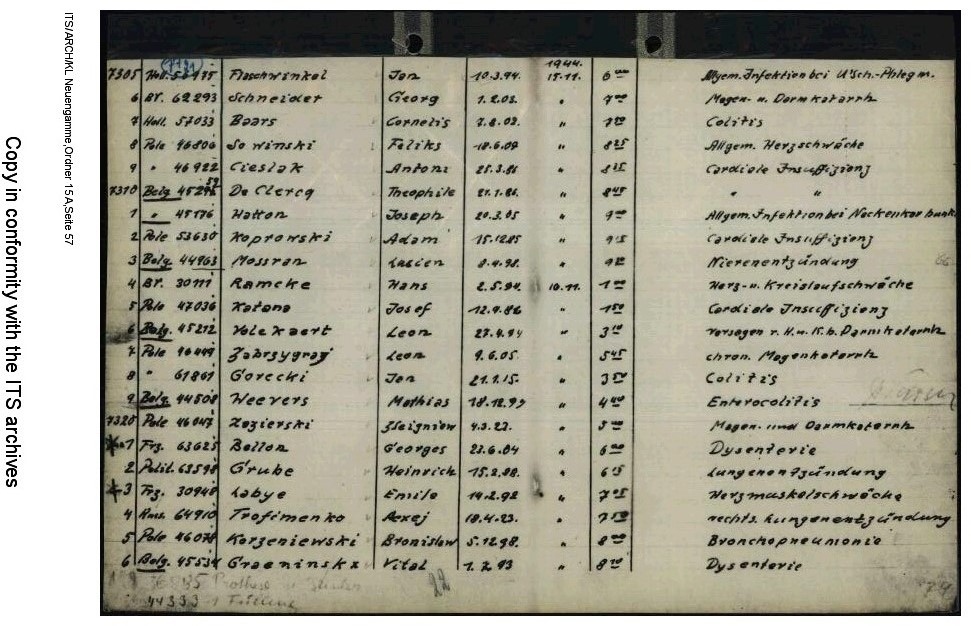 ITS/ARCH/KL Neuengamme, Ordner 15 A, Seite 57
Copy in conformity with the ITS archives
1944.
7305 Holl. Flaschwinkel Jan 10.3.94. 15.11. 6⁰⁰ Allgem. Infektion bei U'Sch.-Phlegm.
6 BV. 62293 Schneider Georg 1.2.03. " 7⁰⁰ Magen- u. Darmkatarrh
7 Holl. 57033 Baars Cornelis 7.8.09. " 7³⁰ Colitis
8 Pole 46806 Sowinski Feliks 18.6.09 " 8²⁵ Allgem. Herzschwäche
9 " 46922 Cieslak Antoni 25.3.86 " 8³⁵ Cardiale Insuffizienz
7310 Belg. De Clercq Theophile 21.1.86. " 8⁴⁵ " "
1 " 45176 Hatton Joseph 20.3.05 " 9⁰⁰ Allgem. Infektion bei Nackenkarbunk.
2 Pole 53630 Koprowski Adam 15.12.85 " 9¹⁵ Cardiale Insuffizienz
3 Belg. 44963 Mossran Lucien 8.4.98. " Nierenentzündung
4 BV. 30111 Ramcke Hans 2.5.94. 16.11. 1⁰⁰ Herz- u. Kreislaufschwäche
5 Pole 47036 Katana Josef 12.9.86 " 1⁵⁰ Cardiale Insuffizienz
6 Belg. 45212 Volekaert Leon 27.4.94 " 3⁰⁰ Versagen v. H. u. K. b. Darmkatarrh
7 Pole Zabrzygraj Leon 9.6.05. " 5⁴⁵ chron. Magenkatarrh
8 " 61861 Gorecki Jan 21.1.15. " 3⁵⁰ Colitis
9 Belg. 44508 Weevers Mathias 18.12.99 " 4⁴⁰ Enterocolitis
7320 Pole 46047 Jezierski Zbigniew 4.3.22. " 5⁰⁰ Magen- und Darmkatarrh
1 Frz. 63625 Bellon Georges 23.6.04 " 6⁰⁰ Dysenterie
2 Polit. 63598 Grube Heinrich 15.2.88. " 6¹⁵ Lungenentzündung
3 Frz. 30948 Labye Emile 14.2.92 " 7⁰⁵ Herzmuskelschwäche
4 Russ. 64910 Trofimenko Alexej 18.4.23. " 7⁵⁰ rechts. Lungenentzündung
5 Pole 46078 Korzeniewski Bronislaw 5.12.98. " 8⁰⁰ Bronchopneumonie
6 Belg. 45534 Graeninskx Vital 1.7.93 " 8²⁰ Dysenterie
22
44333